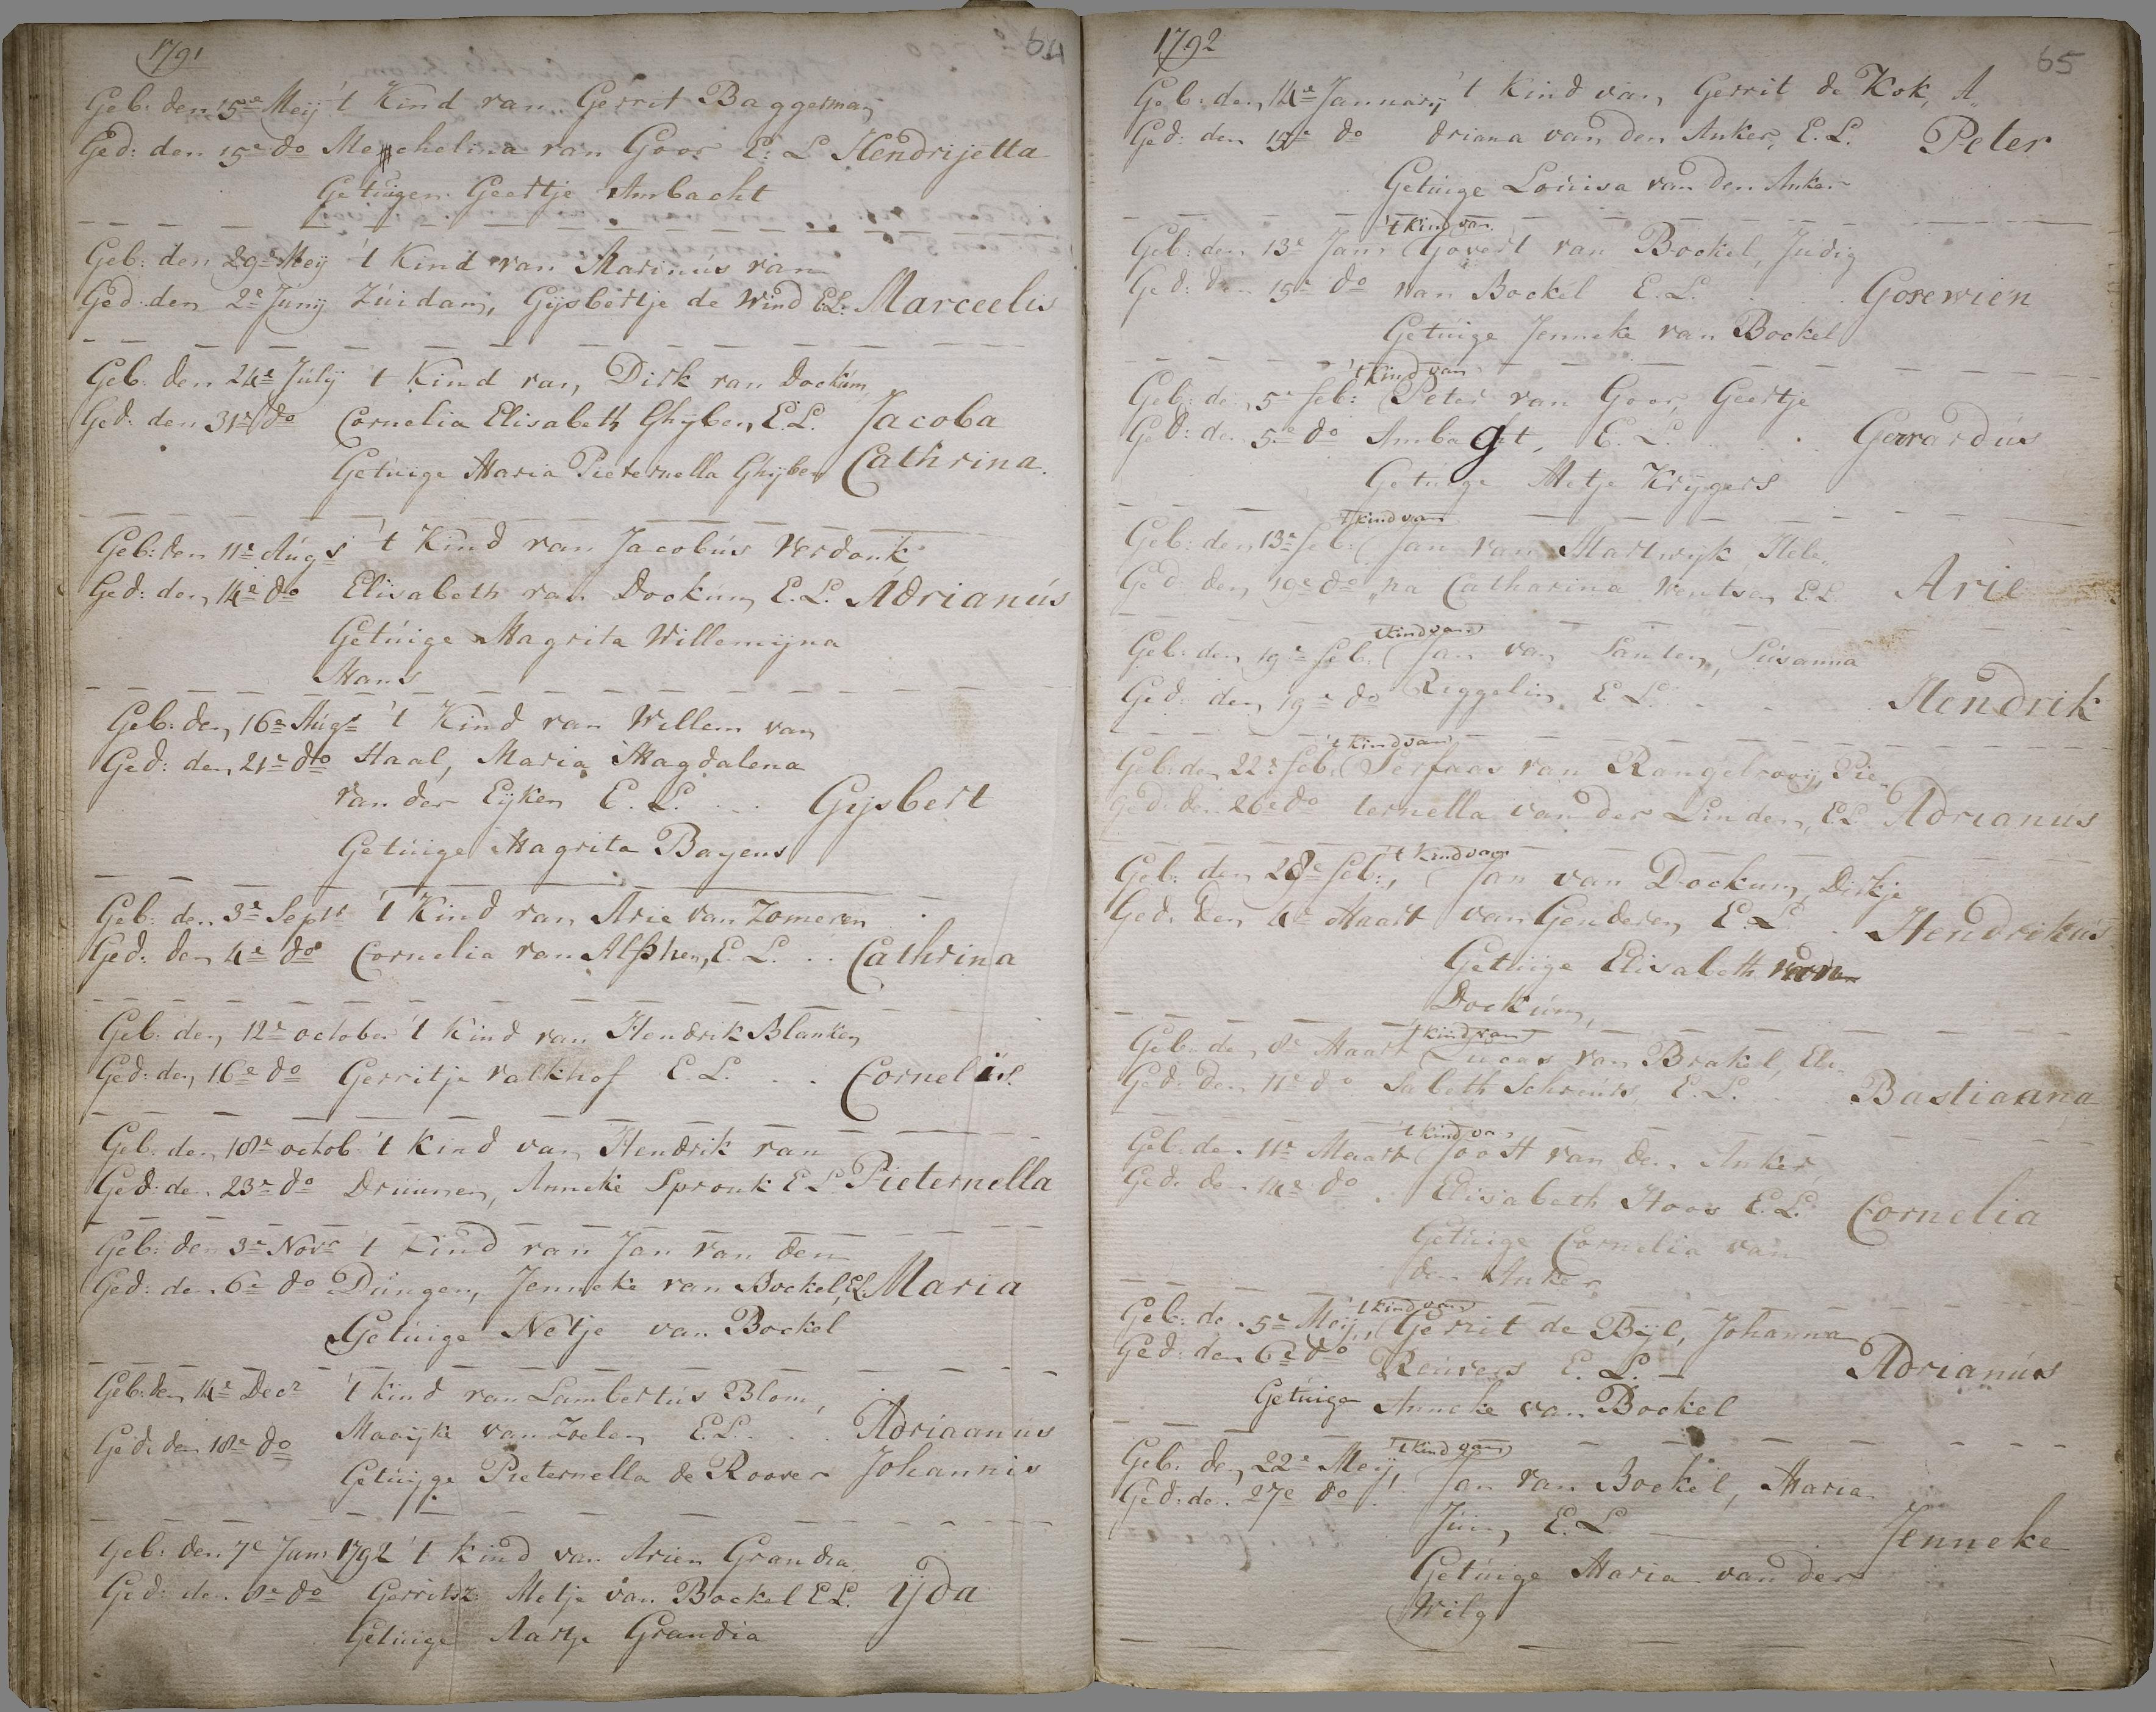 1791
64
Geb: den 15e Meij 't Kind van Gerrit Baggerman
Ged: den 15e do Mechelina van Goor E: L Hendrijetta
Getuigen Geertje Ambacht
Geb: den 29e Meij 't Kind van Marinus van
Ged: den 2e Junij Zuidam, Gijsbertje de Wind E.L. Marceelis
Geb: den 24e Julij 't Kind van, Dirk van Dockum
Ged: den 31e do Cornelia Elisabeth Ghijben, E.L. Jacoba
Getuige Maria Pieternella Ghijben Cathrina
Geb: den 11e Augs 't Kind van Jacobus Verdonk
Ged: den 14e do Elisabeth van Dockum, E.L. Adrianus
Getuige Magrita Willemijna
Hans
Geb: den 16e Augs 't Kind van Willem van
Ged: den 21e do Staal, Maria Magdalena
van der Eijken E. L. Gijsbert
Getuige Magrita Bayens
Geb: den 3e Septr 't Kind van Arie van Zomeren
Ged: den 4e do Cornelia van Alphen, E. L. Cathrina
Geb: den 12e october 't Kind van Hendrik Blanken
Ged: den 16e do Gerritje valkhof E. L. Cornelis
Geb: den 18e octob: 't Kind van Hendrik van
Ged: den 23e do Druunen, Anneke Spronk E L Pieternella
Geb: den 3e Novr 't Kind van Jan van den
Ged: den 6e do Dungen, Jenneke van Bockel, EL. Maria
Getuige Netje van Bockel
Geb: den 14e Decr 't kind van Lambertus Blom,
Ged: den 18e do Maaijke van Zoelen E.L. Adriaanus
Getuijge Pieternella de Roover Johannis
Geb: den 7e Jann 1792 't kind van Arien Grandia
Ged: den 8e do Gerritsz Metje van Bockel E.L. ijda
Getuige Aartje Grandia
1792
65
Geb: den 14e Jannarij 't kind van, Gerrit de Kok, A„
Ged: den 15e do driana van den Anker, E.L. Peter
Getuige Louisa van den Anker
't kind van
Geb: den 13e Jann Govert van Bockel, Judig
Ged: den 15e do van Bockel E.L. Gosewien
Getuige Jenneke van Bockel
't kind van
Geb: den 5e feb: Peter van Goor, Geertje
Ged: den 5e do Ambagt, E. L. Gerardus
Getuige Metje Krijgers
't kind van
Geb: den 13e feb: Jan van Hartwijk, Hele„
Ged: den 19e do „na Catharina Wentsen E.L Arie
't kind van
Geb: den 19e feb: Jan van Santen, Susanna
Ged: den 19e do Reggelin, E L. Hendrik
't kind van
Geb: den 22e feb: Serfaas van Rangelrooij, Pie„
Ged: den 26e do ternella van der Linden, E.L Adrianus
't kind van
Geb: den 28e feb:, Jan van Dockum, Dirkje
Ged: den 4e Maart van Genderen, E. L. Hendrikus
Getuige Elisabeth van
Dockum,
't kind van
Geb: den 8e Maart Lucas van Brakel, Eli„
Ged: den 11e do Sabeth Schreuts, E. L. Bastiaana
't kind van
Geb: den 11e Maart Joost van den Anker,
Ged: den 14e do Elisabeth Hoos E.L. Cornelia
Getuige Cornelia van
den Anker
't kind van
Geb: den 5e Meij, Gerrit de Bijl, Johanna
Ged: den 6e do Reuvers E. L. Adrianus
Getuige Anneke van Bockel
't kind van
Geb: den 22e Meij, Jan van Bockel, Maria
Ged: den 27e do
E.L. Jenneke
Getuige Maria van der
Wilg